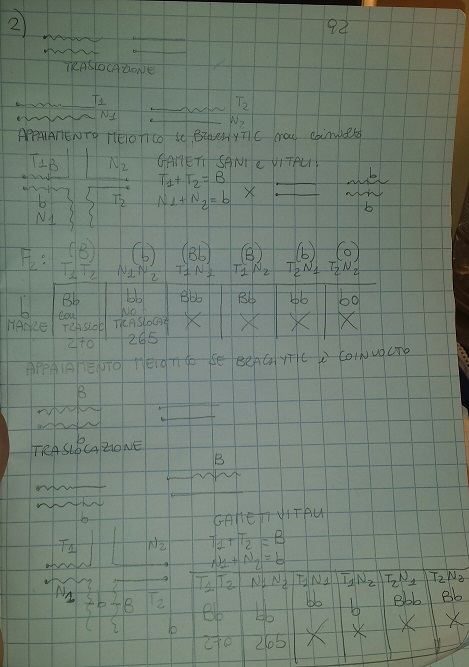 2)
92
TRASLOCAZIONE
T1 T2
N1 N2
APPAIAMENTO MEIOTICO SE BRACHYTIC non coinvolto
T1 B N2 GAMETI SANI e VITALI:
T1+T2 = B
b T2 N1+N2 = b X b
N1 b
F2: (B) (b) (Bb) (B) (b) (0)
T1T2 N1N2 T1N1 T1N2 T2N1 T2N2
b Bb bb Bbb Bb bb b0
MADRE con NO X X X X
TRASLOC TRASLOCAZ
270 265
APPAIAMENTO MEIOTICO SE BRACHYTIC è COINVOLTO
B
b
TRASLOCAZIONE
B
b
GAMETI VITALI
T1 N2 T1+T2 = B
N1+N2 = b
N1 b B T2 T1T2 N1N2 T1N1 T1N2 T2N1 T2N2
b Bb bb bb b Bbb Bb
270 265 X X X X